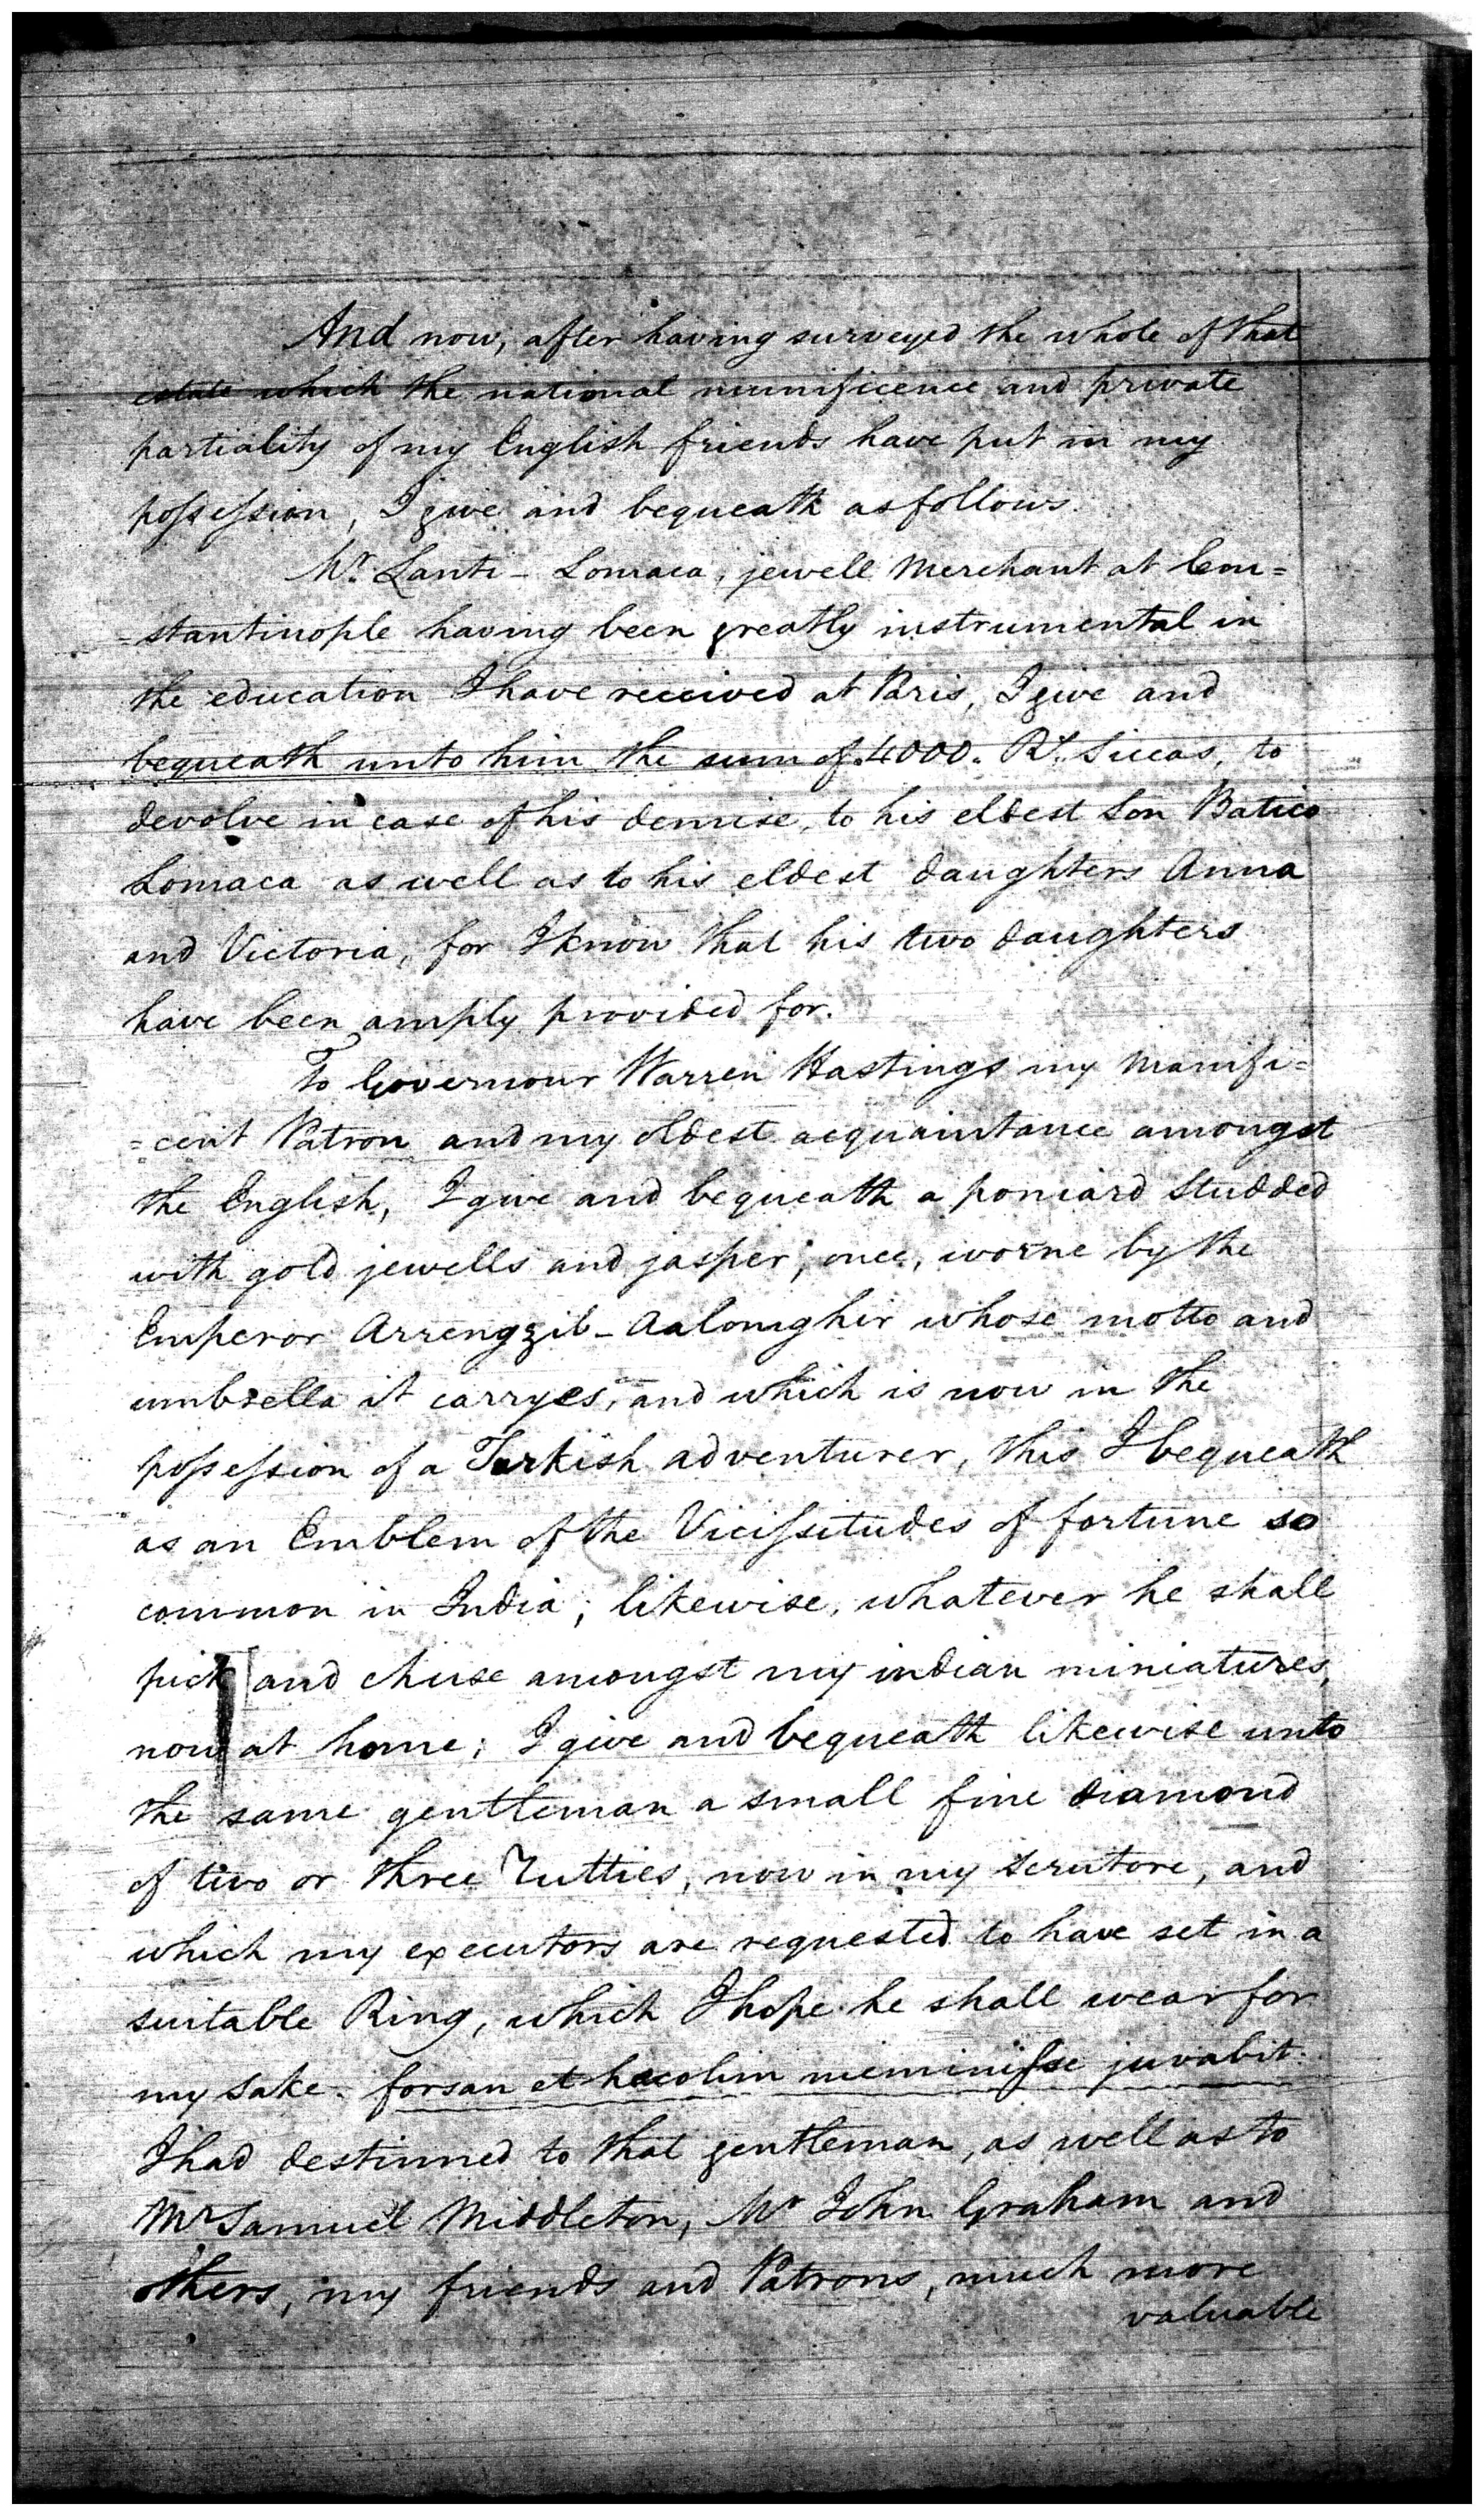 And now, after having surveyed the whole of that
estate which the national munificence and private
partiality of my English friends have put in my
possession, I give and bequeath as follows.
Mr. Santi-Lomaca, jewell Merchant at Con=
=stantinople having been greatly instrumental in
the education I have received at Paris, I give and
bequeath unto him the sum of 4000. Rs. Siccas, to
devolve in case of his demise, to his eldest Son Batico
Lomaca as well as to his eldest daughters Anna
and Victoria, for I know that his two daughters
have been amply provided for.
To Governour Warren Hastings my Manifi=
=cent Patron and my oldest acquaintance amongst
the English, I give and bequeath a poniard Studded
with gold jewells and jasper, once, worne by the
Emperor Arrengzib-Aalomghir whose motto and
umbrella it carryes, and which is now in the
possession of a Turkish adventurer, this I bequeath
as an Emblem of the Vicissitudes of fortune so
common in India; likewise, whatever he shall
pick and chuse amongst my indian miniatures,
now at home; I give and bequeath likewise unto
the same gentleman a small fine diamond
of two or three Rutties, now in my Scrutore, and
which my executors are requested to have set in a
suitable Ring, which I hope he shall wear for
my sake. forsan et haec olim meminisse juvabit.
I had destinned to that gentleman, as well as to
Mr Samuel Middleton, Mr John Graham and
others, my friends and Patrons, much more
valuable